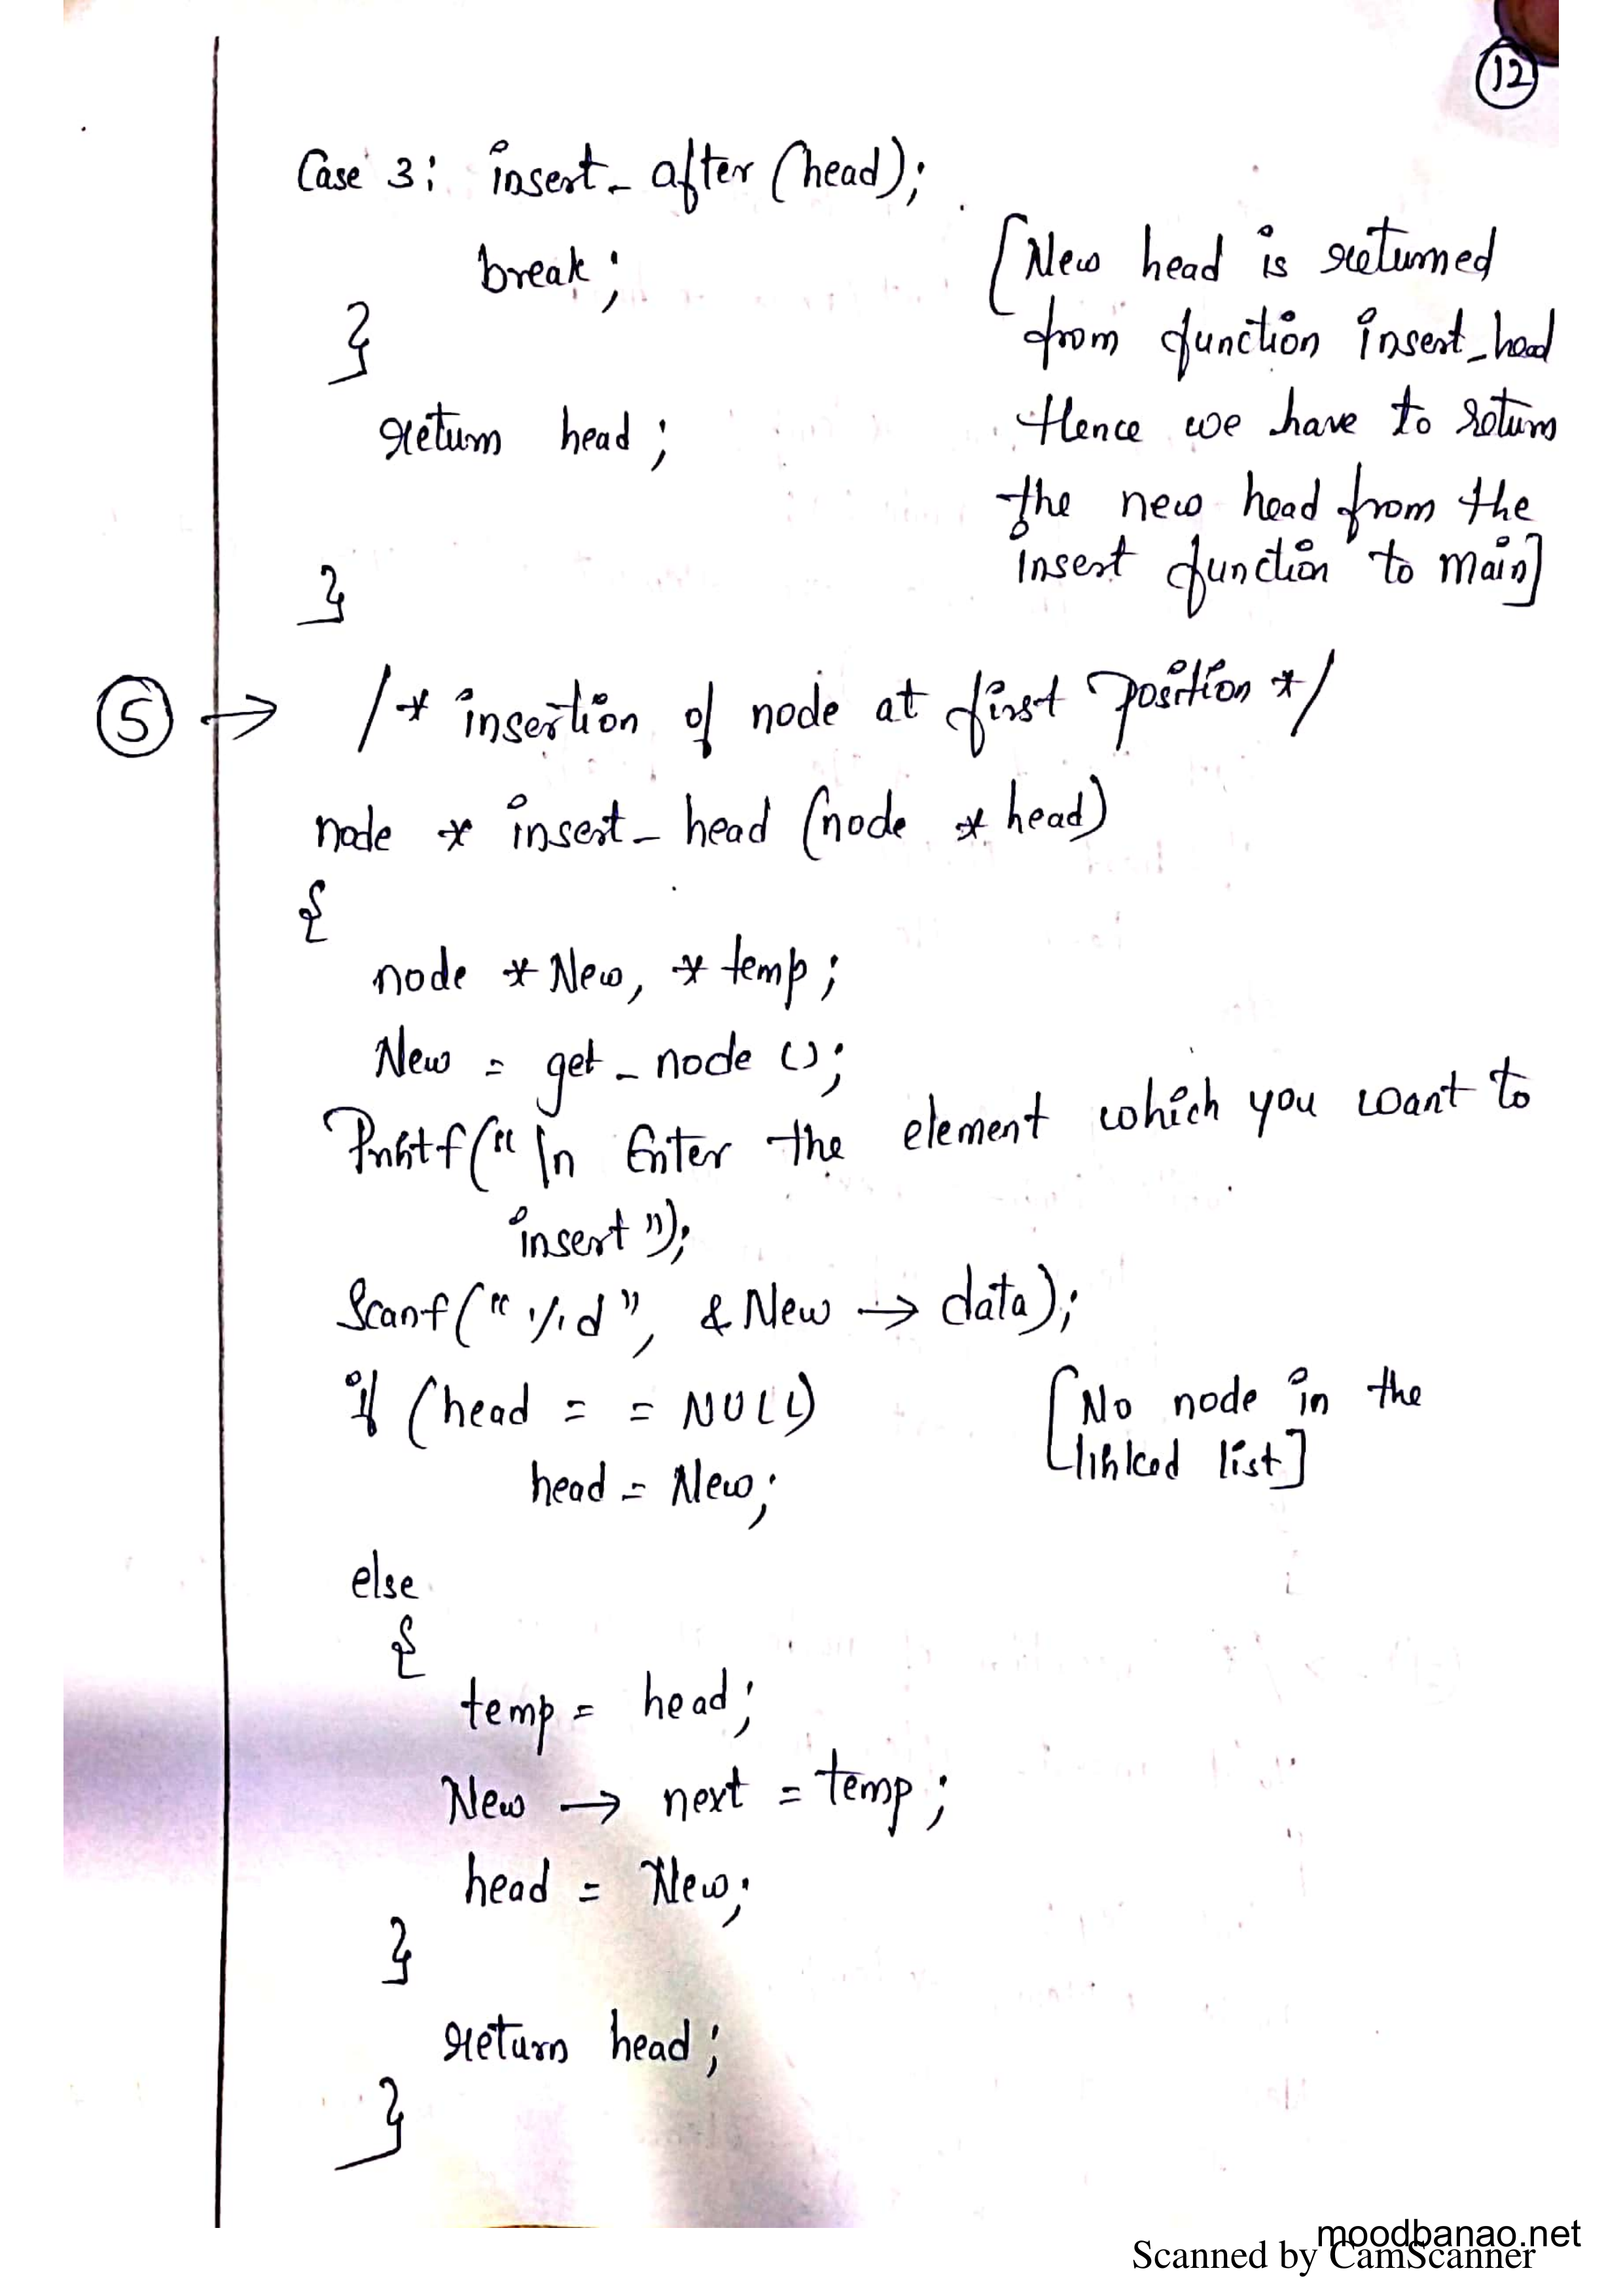 12
Case 3: insert_after(head);
break;
[New head is returned
from function insert_head
}
Hence we have to return
return head;
the new head from the
insert function to main]
}
5 → /* insertion of node at first position */
node * insert_head (node * head)
{
node *New, *temp;
New = get_node ();
Printf("\n Enter the element which you want to
insert");
Scanf("%d", &New → data);
if (head = = NULL)
[No node in the
linked list]
head = New;
else
{
temp = head;
New → next = temp;
head = New;
}
return head;
}
moodbanao.net
Scanned by CamScanner